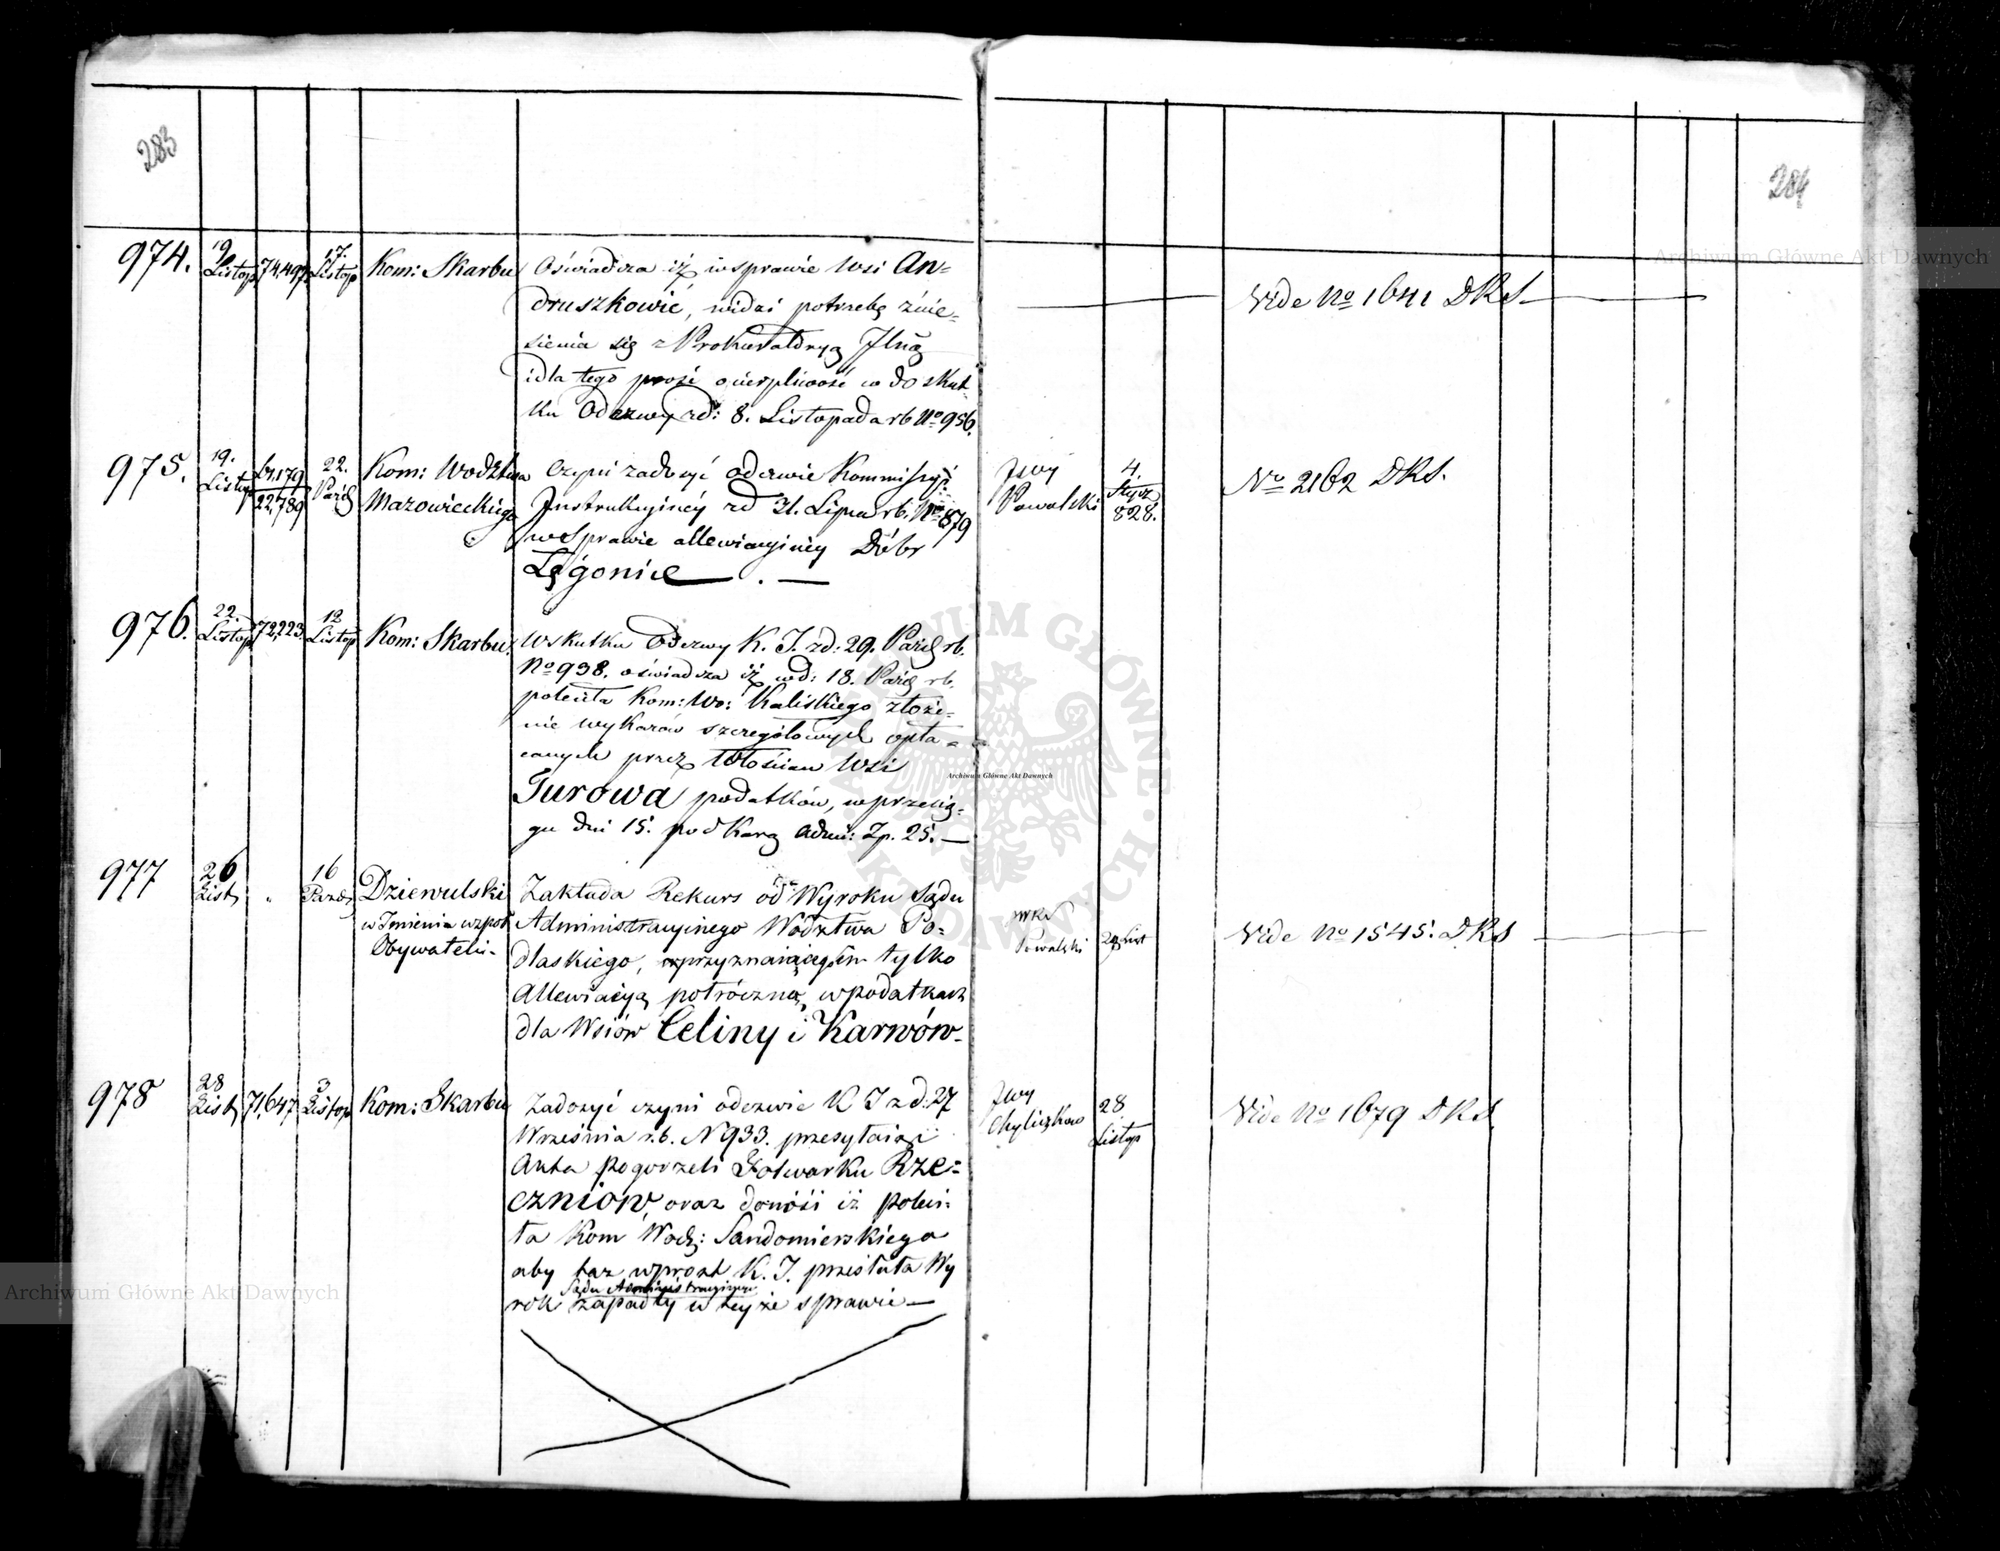 283
284
974. 19. Listop 74,497. 17. Listop Kom: Skarbu Oświadcza iż w sprawie Wsi An-
druszkowic, widzi potrzebę znie-
sienia się z Prokuratoryą Jlną
i dla tego prosi o cierpliwość w do skut-
ku Odezwy zd: 8. Listopada rb No 956.
Vide No 1641 DKS.
975. 19. Listop 61,179 22. Paźd Kom: Wodztwa Czyni zadosyć odezwie Kommissyi
22,789
Mazowieckiego Instrukcyiney zd 31. Lipca rb. No 879
w Sprawie allewiacyiney Dóbr
Łęgonice —— . —
Jwy
Kowalski
4.
Stycz
828.
No 2162 DKS.
976. 22. Listop 72,223. 12 Listop Kom: Skarbu. W skutku Odezwy K. I. zd: 29. Paźd rb.
No 938. oświadcza iż zd: 18. Paźd rb.
poleciła Kom: Wo: Kaliskiego złoże-
nie wykazów szczegółowych opła-
canych przez Włościan Wsi
Turowa podatków, w przecią-
gu dni 15. pod Karą admi: Zp. 25. —
977 26 List. „ 16 Pazd. Dziewulski Zakłada Rekurs od Wyroku Sądu
w Imieniu współ Administracyinego Wództwa Po-
Obywateli- dlaskiego, przyznaiącego im tylko
Allewiacyą potróczną w podatkach
dla Wsiów Celiny i Karwów-
Kowalski
Vide No 1545. DKS
978 28 List. 71,647 3 Listop Kom: Skarbu Zadosyć czyni odezwie K I zd: 27
Września r.b. N 933. przesyłaiąc
Akta pogorzeli Folwarku Rze-
czniow, oraz donosi iż poleci-
ła Kom Wodz: Sandomierskiego
aby taz wprost K. I. przesłała Wy
Sądu Administracyinego
rok zapadły w teyże sprawie —
Jwy
28
Listop
Vide No 1679 DKS
Archiwum Główne Akt Dawnych
Archiwum Główne Akt Dawnych
Archiwum Główne Akt Dawnych
ARCHIWUM GŁÓWNE AKT DAWNYCH